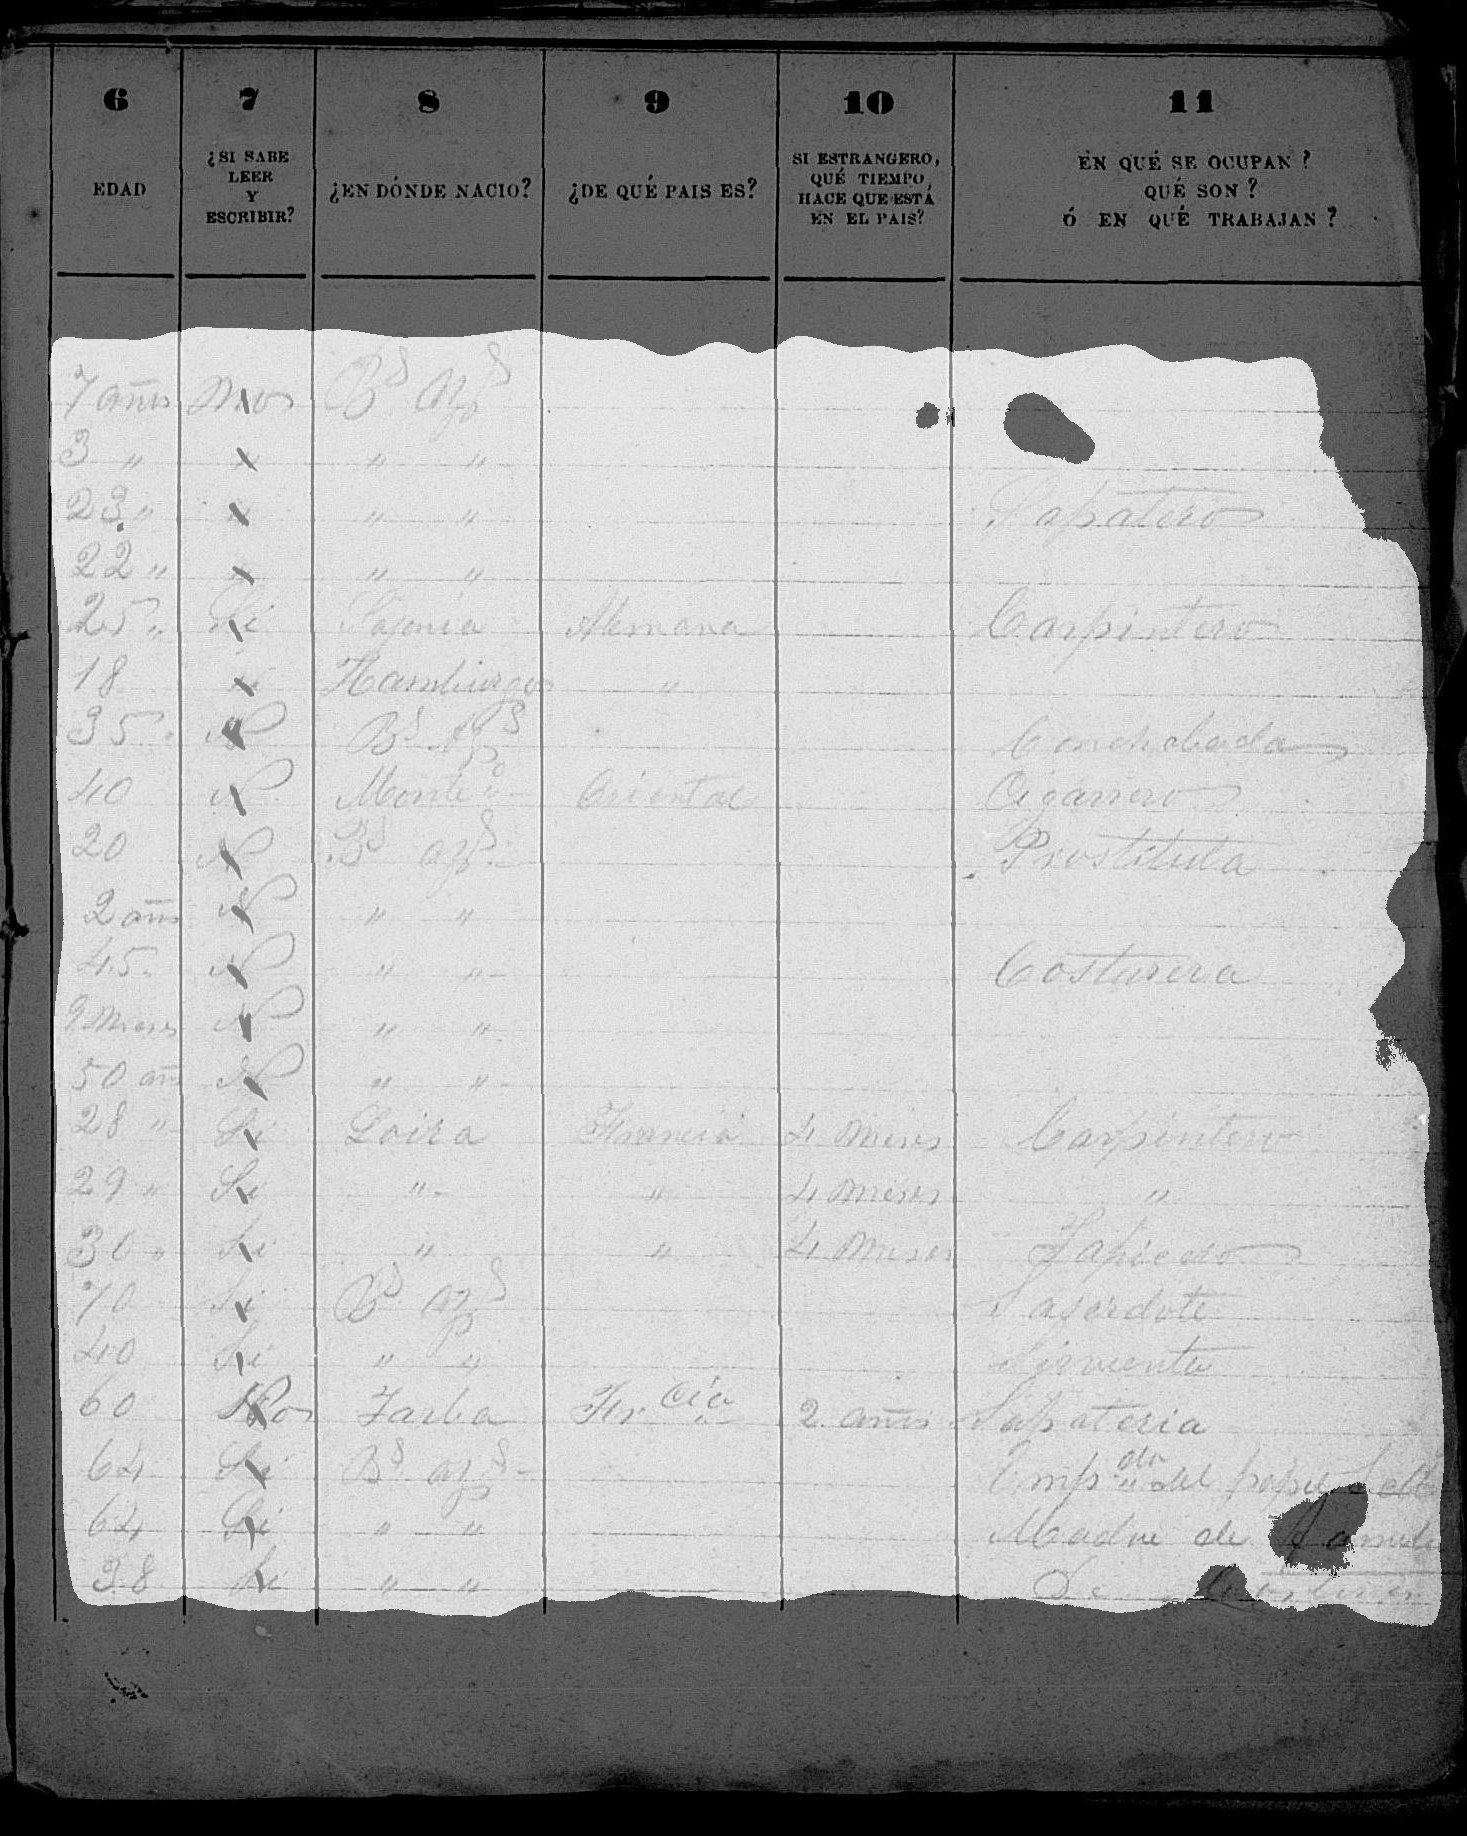 6 7 8 9 10 11
EDAD ¿SI SABE LEER Y ESCRIBIR? ¿EN DÓNDE NACIO? ¿DE QUÉ PAIS ES? SI ESTRANGERO, QUÉ TIEMPO HACE QUE ESTÁ EN EL PAIS? EN QUÉ SE OCUPAN? QUÉ SON? Ó EN QUÉ TRABAJAN?
7 años Bs Ays
3 " " "
23 " " " Sapatero
22 " " "
25 " Si Sajonia Alemana Carpintero
18 Hamburgo "
35 N Bs Ays Conchabada
40 N Monteo Oriental Cigarrero
20 N Bs ays Prostituta
2 años N " "
45 N " " Costurera
9 Meses N " "
50 añ N " "
28 " Si Loira Francia 4 meses Carpintero
29 " Si " " 4 meses "
30 " Si " " 4 meses
70 Si Bs ays Saserdote
40 Si " " Sirvienta
60 Nos Tarba Francia 2 años Sapateria
64 Si Bs ays Empdo del papel Sell
64 Si " " Madre de Famili
38 Si " " De